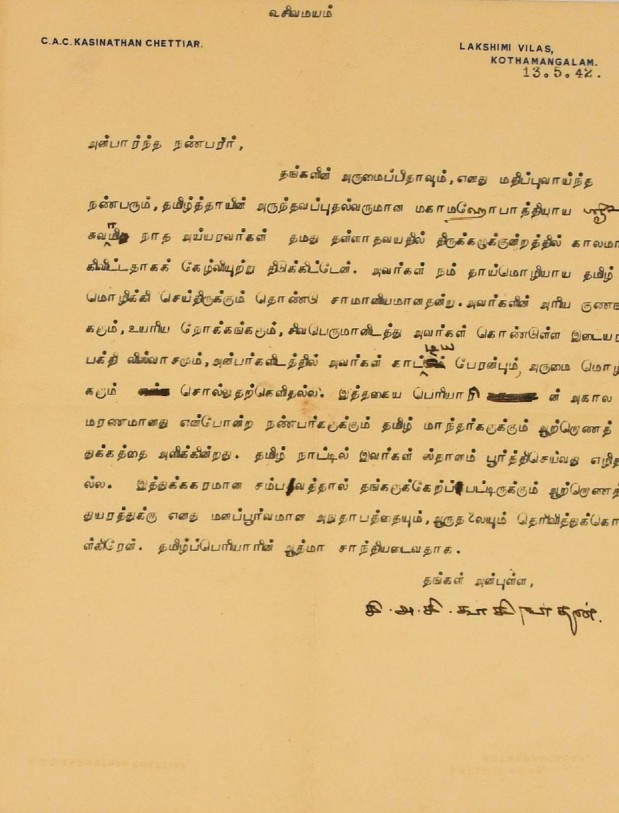 உ சிவமயம்
C.A.C. KASINATHAN CHETTIAR.
LAKSHIMI VILAS,
KOTHAMANGALAM.
13.5.42.
அன்பார்ந்த நண்பரீர்,
தங்களின் அருமைப்பிதாவும், எனது மதிப்புவாய்ந்த
நண்பரும், தமிழ்த்தாயின் அருந்தவப்புதல்வருமான மகாமஹோபாத்தியாய
சுவாமி நாத அய்யரவர்கள் தமது தள்ளாதவயதில் திருக்கழுக்குன்றத்தில் காலமா
கிவிட்டதாகக் கேழ்வியுற்று திடுக்கிட்டேன். அவர்கள் நம் தாய்மொழியாய தமிழ்
மொழிக்கி செய்திருக்கும் தொண்டு சாமானியமானதன்று. அவர்களின் அரிய குணங்
களும், உயரிய நோக்கங்களும், சிவபெருமானிடத்து அவர்கள் கொண்டுள்ள இடையற
பக்தி விஸ்வாசமும், அன்பர்களிடத்தில் அவர்கள் பேரன்பும், அருமை மொழி
களும் சொல்லுதற்கெளிதல்ல. இத்தகைய பெரியாரி ன் அகால
மரணமானது என்போன்ற நண்பர்களுக்கும் தமிழ் மாந்தர்களுக்கும் ஆற்றொணத்
துக்கத்தை அளிக்கின்றது. தமிழ் நாட்டில் இவர்கள் ஸ்தானம் பூர்த்திசெய்வது எழித
ல்ல. இத்துக்ககரமான சம்பவத்தால் தங்களுக்கேற்பட்டிருக்கும் ஆற்றொணத்
துயரத்துக்கு எனது மனப்பூர்வமான அனுதாபத்தையும், ஆருதலையும் தெரிவித்துக்கொ
ள்கிரேன். தமிழ்ப்பெரியாரின் ஆத்மா சாந்தியடைவதாக.
தங்கள் அன்புள்ள,